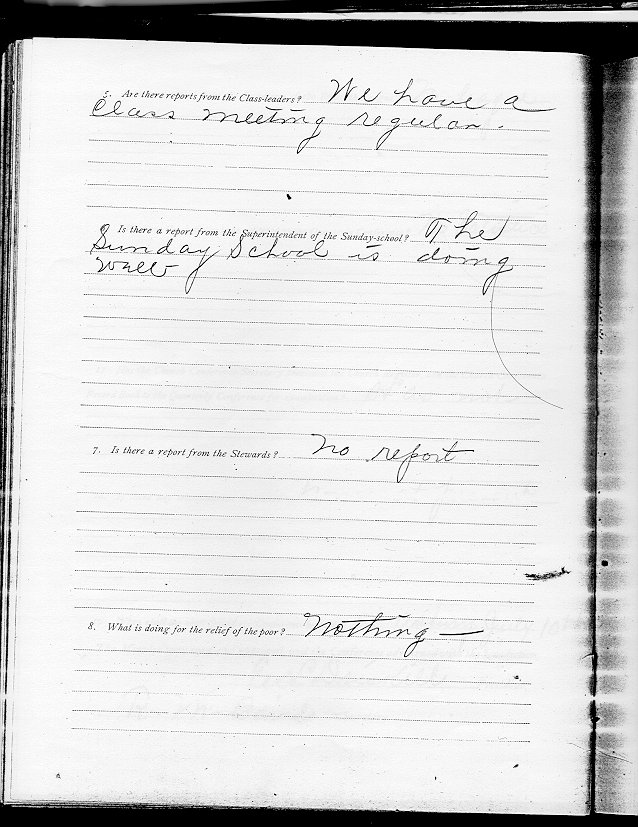 5. Are there reports from the Class-leaders? We have a
Class meeting regular.
6. Is there a report from the Superintendent of the Sunday-school? The
Sunday School is doing
well
7. Is there a report from the Stewards? No report
8. What is doing for the relief of the poor? Nothing —